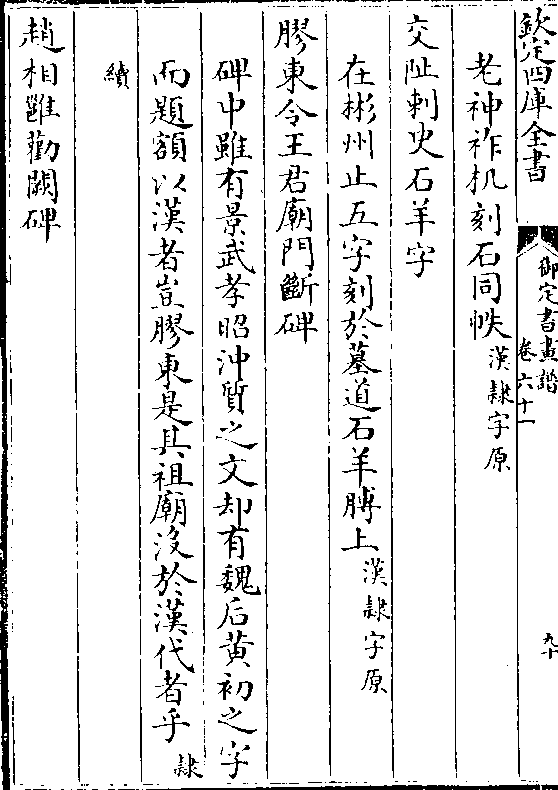 欽定四庫全書
御定書畫譜
卷六十一
九十
老神祚机刻石同帙漢隸字原
交阯刺史石羊字
在彬州止五字刻於墓道石羊膊上漢隸字原
膠東令王君廟門斷碑
碑中雖有景武孝昭沖質之文却有魏后黃初之字
而題額以漢者豈膠東是其祖廟沒於漢代者乎隸
續
趙相雝勸闕碑